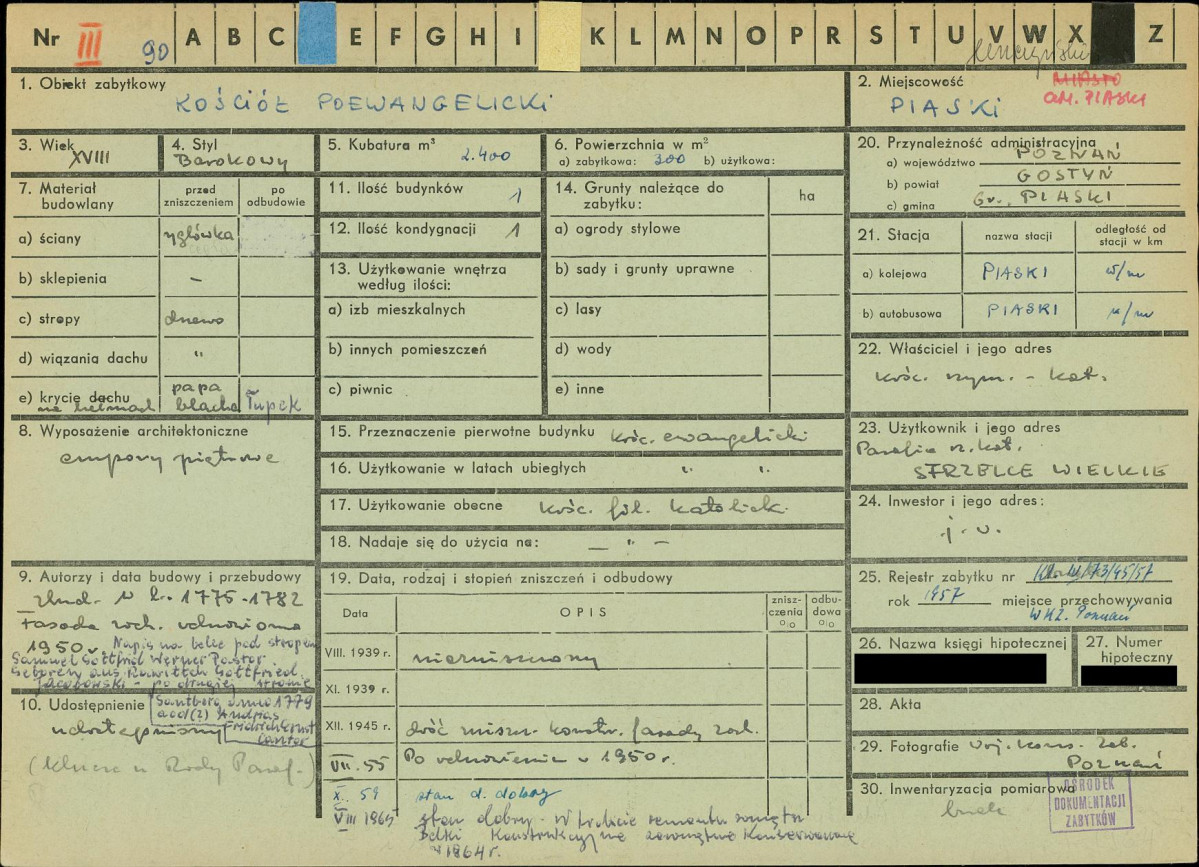 Nr III 90 A B C E F G H I K L M N O P R S T U V W X Z
1. Obiekt zabytkowy
KOŚCIÓŁ POEWANGELICKI
2. Miejscowość MIASTO
GM. PIASKI
PIASKI
3. Wiek
XVIII
4. Styl
Barokowy
5. Kubatura m³
2.400
6. Powierzchnia w m²
a) zabytkowa: 300 b) użytkowa:
20. Przynależność administracyjna
a) województwo POZNAŃ
b) powiat GOSTYŃ
c) gmina Gr. PIASKI
7. Materiał budowlany
przed zniszczeniem
po odbudowie
a) ściany ryglówka
b) sklepienia –
c) stropy drewno
d) wiązania dachu "
e) krycie dachu papa
na hełmach blacha łupek
11. Ilość budynków 1
12. Ilość kondygnacji 1
13. Użytkowanie wnętrza
według ilości:
a) izb mieszkalnych
b) innych pomieszczeń
c) piwnic
14. Grunty należące do
zabytku:
ha
a) ogrody stylowe
b) sady i grunty uprawne
c) lasy
d) wody
e) inne
21. Stacja
nazwa stacji
odległość od
stacji w km
a) kolejowa PIASKI w/m
b) autobusowa PIASKI w/m
22. Właściciel i jego adres
kośc. rzym. - kat.
8. Wyposażenie architektoniczne
empory piętrowe
15. Przeznaczenie pierwotne budynku kośc. ewangelicki
16. Użytkowanie w latach ubiegłych " "
17. Użytkowanie obecne kośc. fil. katolick.
18. Nadaje się do użycia na: — " —
23. Użytkownik i jego adres
Parafia rz. kat.
STRZELCE WIELKIE
24. Inwestor i jego adres:
j. w.
9. Autorzy i data budowy i przebudowy
zbud. w l. 1775-1782
Fasada zach. odnowiona
1950 r. Napis na belce pod stropem
Samuel Gottfrid Werner Pastor
Geboren aus Rawitsch Gottfried
Jacobowski - po drugiej stronie
Santberg anno 1779
Andrias
Fridrich Ernst
Cantor
10. Udostępnienie
udostępniony
(Klucze u Rady Paraf.)
19. Data, rodzaj i stopień zniszczeń i odbudowy
Data
OPIS
znisz-
czenia
%
odbu-
dowa
%
VIII. 1939 r. niezniszczony
XI. 1939 r.
XII. 1945 r. dość zniszcz. konstr. fasady zach.
VII. 55 Po odnowieniu w 1950 r.
X. 59 stan d. dobry
VIII 1965 stan dobry - w trakcie remontu wnętrza
Belki Konstrukcyjne zewnętrzne Konserwowane
w 1964 r.
25. Rejestr zabytku nr
rok 1957 miejsce przechowywania
WKZ. Poznań
26. Nazwa księgi hipotecznej
27. Numer
hipoteczny
28. Akta
29. Fotografie Woj. Kons. Zab.
Poznań
30. Inwentaryzacja pomiarowa
brak
OŚRODEK
DOKUMENTACJI
ZABYTKÓW